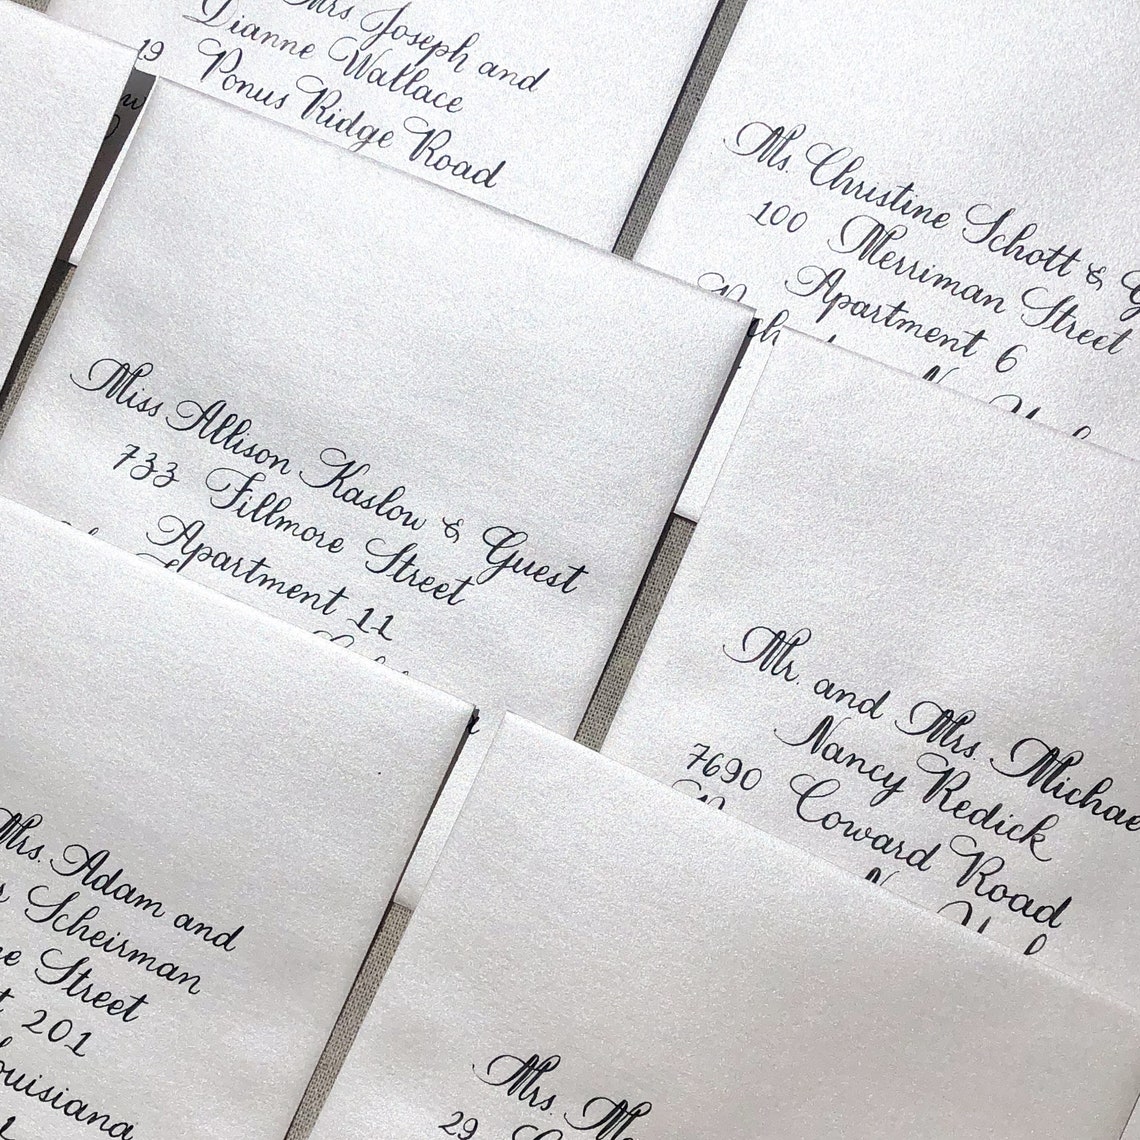 Mrs Joseph and
Dianne Wallace
19 Ponus Ridge Road
Ms. Christine Schott &
100 Merriman Street
Apartment 6
Miss Allison Kaslow & Guest
733 Fillmore Street
Apartment 11
Mr. and Mrs. Michae
Nancy Redick
7690 Coward Road
Mrs. Adam and
Scheirman
Street
201
ouisiana
Mrs.
29